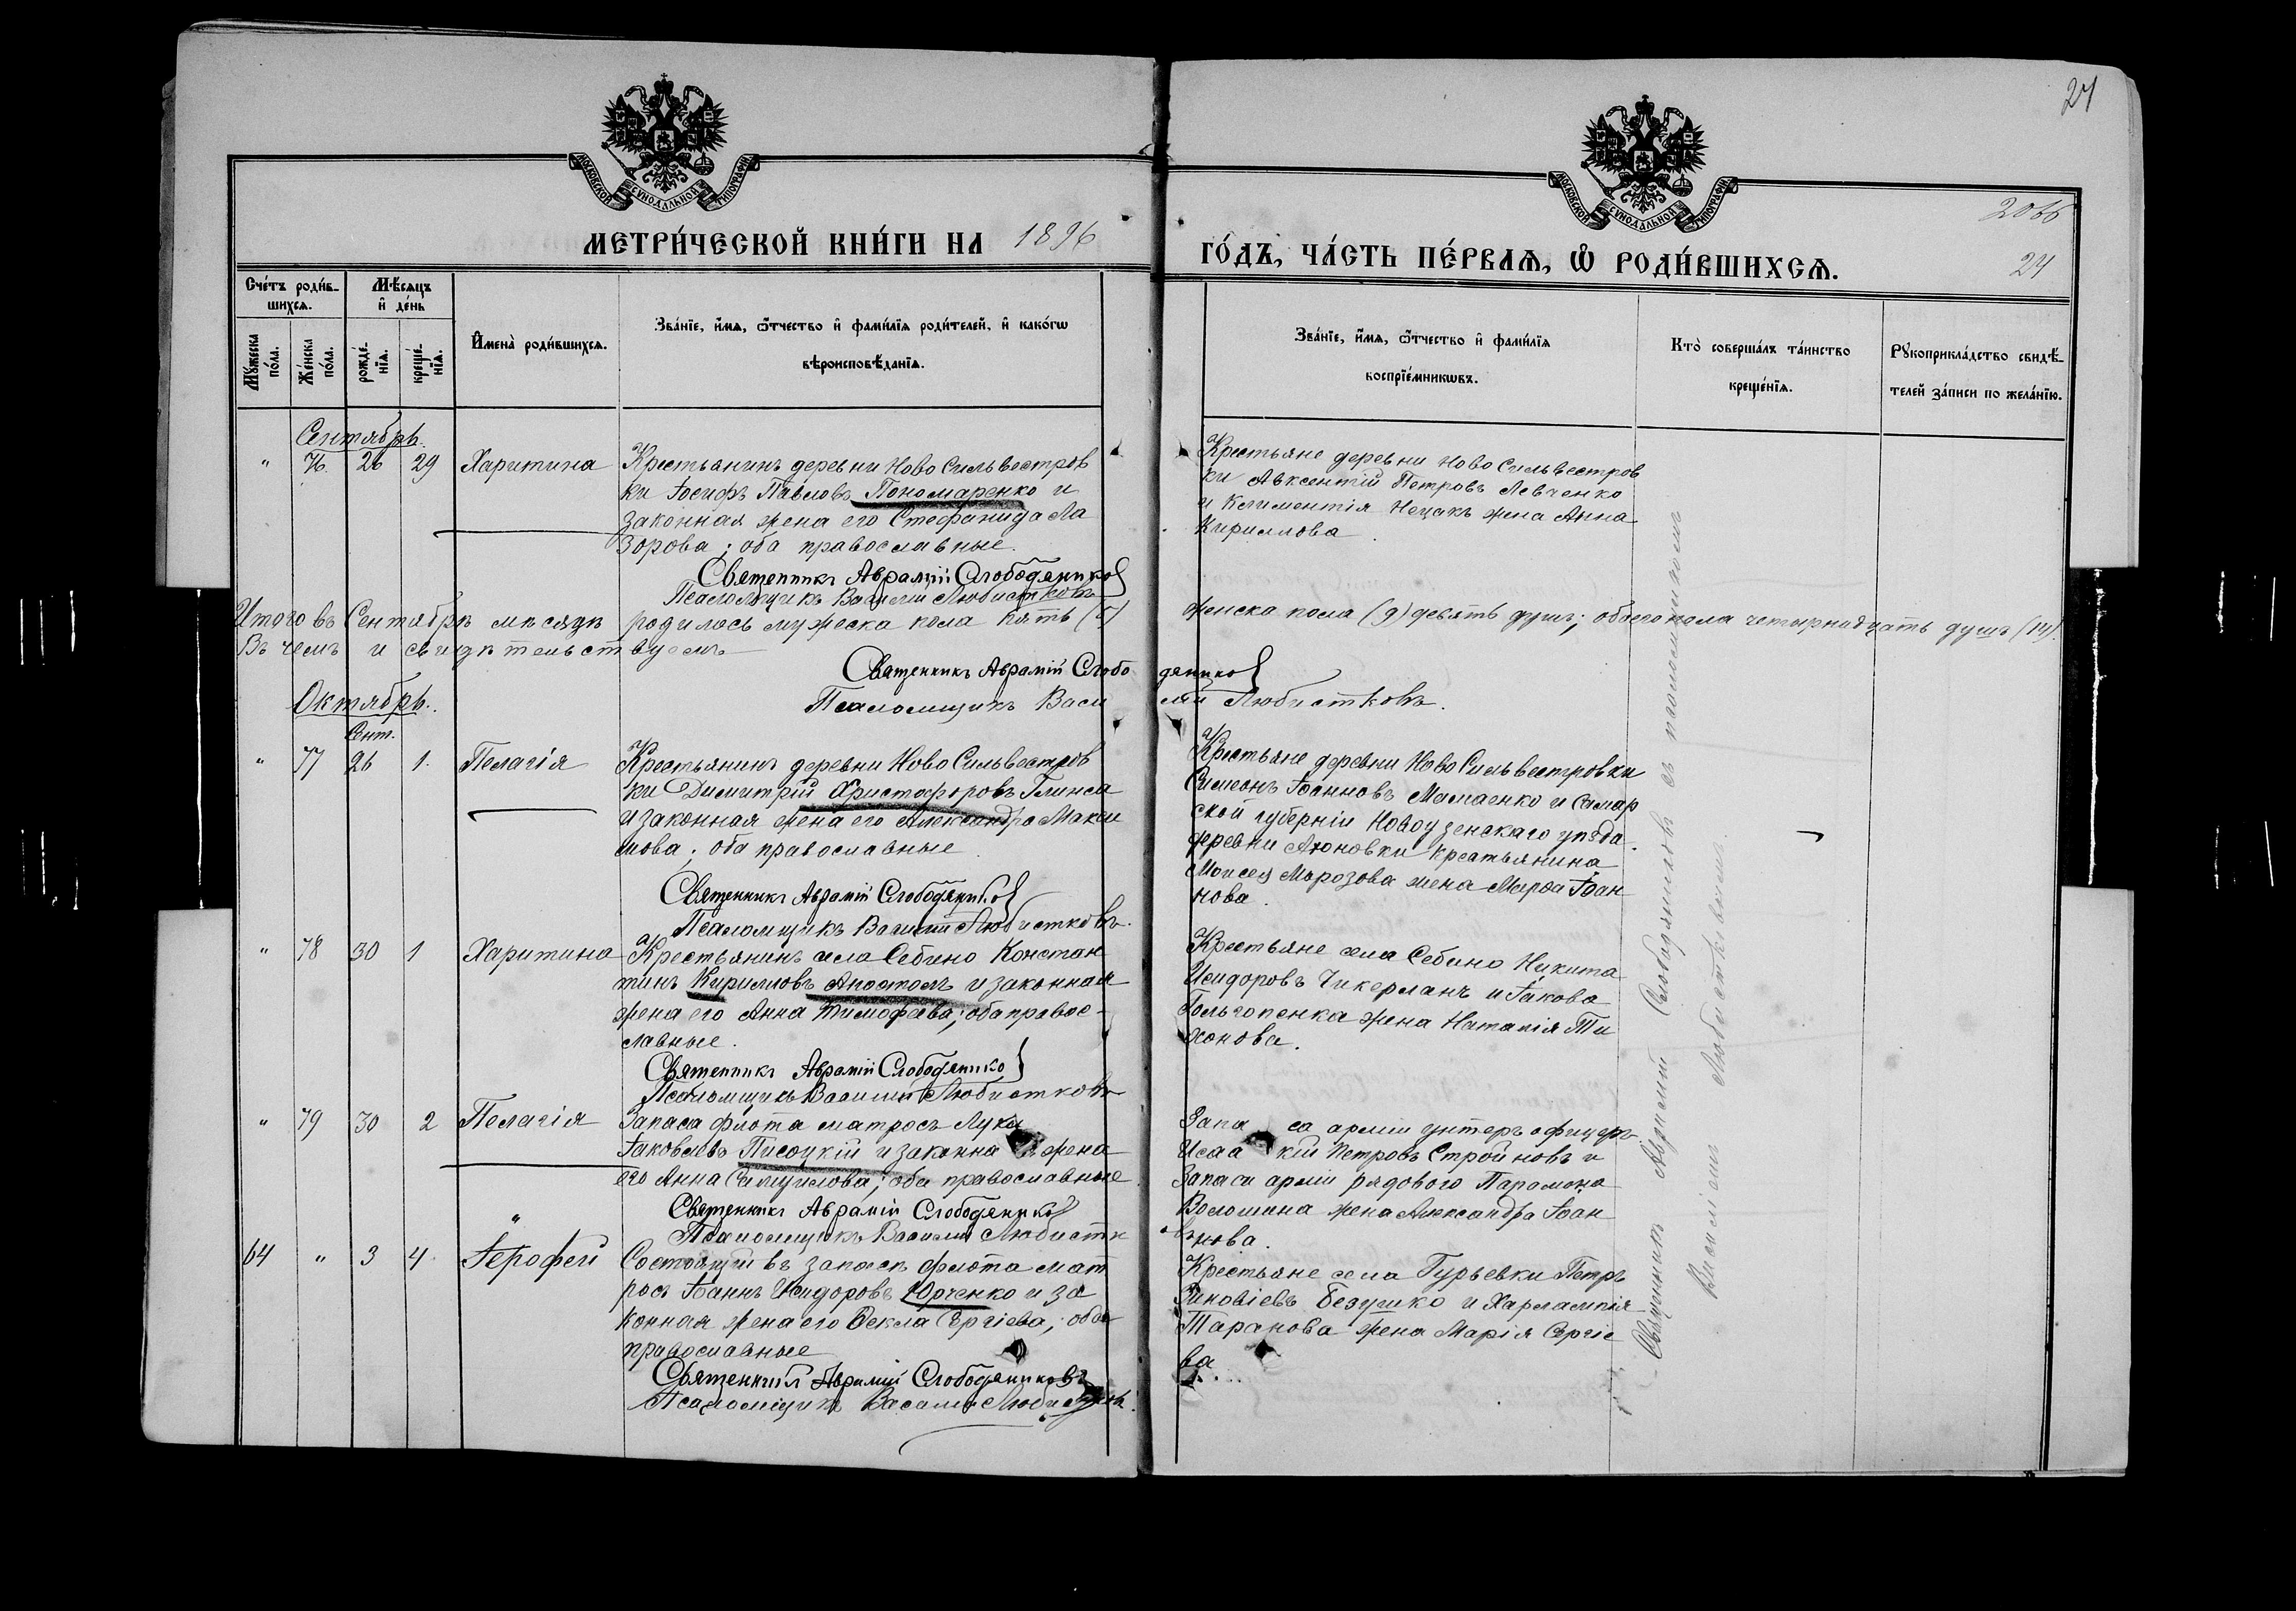 24
МОСКОВСКОЙ СѴНОДАЛЬНОЙ ТИПОГРАФІИ
МОСКОВСКОЙ СѴНОДАЛЬНОЙ ТИПОГРАФІИ
МЕТРИ́ЧЕСКОЙ КНИ́ГИ НА 1896
ГО́ДЪ, ЧА́СТЬ ПЕ́РВАѦ, Ѡ҆ РОДИ́ВШИХСѦ.
24
Сче́тъ роди́в-
шихся.
Мѣ́сяцъ
и҆ де́нь
Мꙋ́жеска
по́ла.
Же́нска
по́ла.
рожде́-
нїѧ.
креще́-
нїѧ.
И҆мена̀ роди́вшихсѧ.
Зва́нїе, и҆́мѧ, ѻ҆́тчество и҆ фами́лїѧ роди́телей, и҆ како́гѡ
вѣроисповѣ́данїѧ.
Зва́нїе, и҆́мѧ, ѻ҆́тчество и҆ фами́лїѧ
воспрїе́мникѡвъ.
Кто̀ соверша́лъ та́инство
креще́нїѧ.
Рꙋкоприкла́дство свидѣ́-
телей за́писи по жела́нїю.
Сентябрь.
" 76. 26 29 Харитина
Крестьянинъ деревни Ново Сильвестров
ки Іосифъ Павловъ Пономаренко и
законная жена его Стефанида Ла
зорова; оба православные.
Священникъ Аврамій Слободянико
Псаломщикъ Василій Любистковъ
Крестьяне деревни Ново Сильвестров
ки Авксентій Петровъ Левченко
и Климентія Нецакъ жена Анна
Кириллова.
Итого въ Сентябрѣ мѣсяцѣ родилось мужеска пола пять (5) женска пола (9) девять душъ; обоего пола четырнадцать душъ (14).
Въ чемъ и свидѣтельствуемъ
Священникъ Аврамій Слободянико
Псаломщикъ Василій Любистковъ.
Октябрь.
Сент.
" 77 26 1. Пелагія
Крестьянинъ деревни Ново Сильвестров
ки Димитрій Христофоровъ Глинса
и законная жена его Александра Макси
мова; оба православные.
Священникъ Аврамій Слободянико
Псаломщикъ Василій Любистковъ.
Крестьяне деревни Ново Сильвестровки
Симеонъ Іоанновъ Мамаенко и Самар
ской губерніи Новоузенскаго уѣзда
деревни крестьянина
Моисея Морозова жена Марѳа Іоан
нова.
" 78 30 1 Харитина
Крестьянинъ села Себино Констан
тинъ Кирилловъ Апостолъ и законная
жена его Анна Тимофеева; оба правос-
лавные.
Священникъ Аврамій Слободянико
Псаломщикъ Василій Любистковъ
Крестьяне села Себино Никита
Исидоровъ Чикерланъ и Іакова
Гольчопенка жена Наталія Ти
хонова.
" 79 30 2 Пелагія
Запаса флота матросъ Лука
Іаковлевъ Писоцкій и законная жена
его Анна Самуилова; оба православные.
Священникъ Аврамій Слободянико
Псаломщикъ Василій Любистковъ
Запаса арміи унтеръ офицеръ
Исаакій Петровъ Стройновъ и
Запаса арміи рядового Парамона
Волошина жена Александра Іоан
нова.
64 " 3 4. Іерофей
Состоящій въ запасѣ флота мат
росъ Іоаннъ Исидоровъ Юрченко и за
конная жена его Ѳекла Сергіева; оба
православные
Священникъ Аврамій Слободяниковъ
Псаломщикъ Василій Любистковъ.
Крестьяне села Гурьевки Петръ
Зиновіевъ Безушко и Харлампія
Таранова жена Марія Сергіе
ва.
Священникъ Аврамій Слободяниковъ съ псаломщикомъ
Василіемъ Любистковымъ.